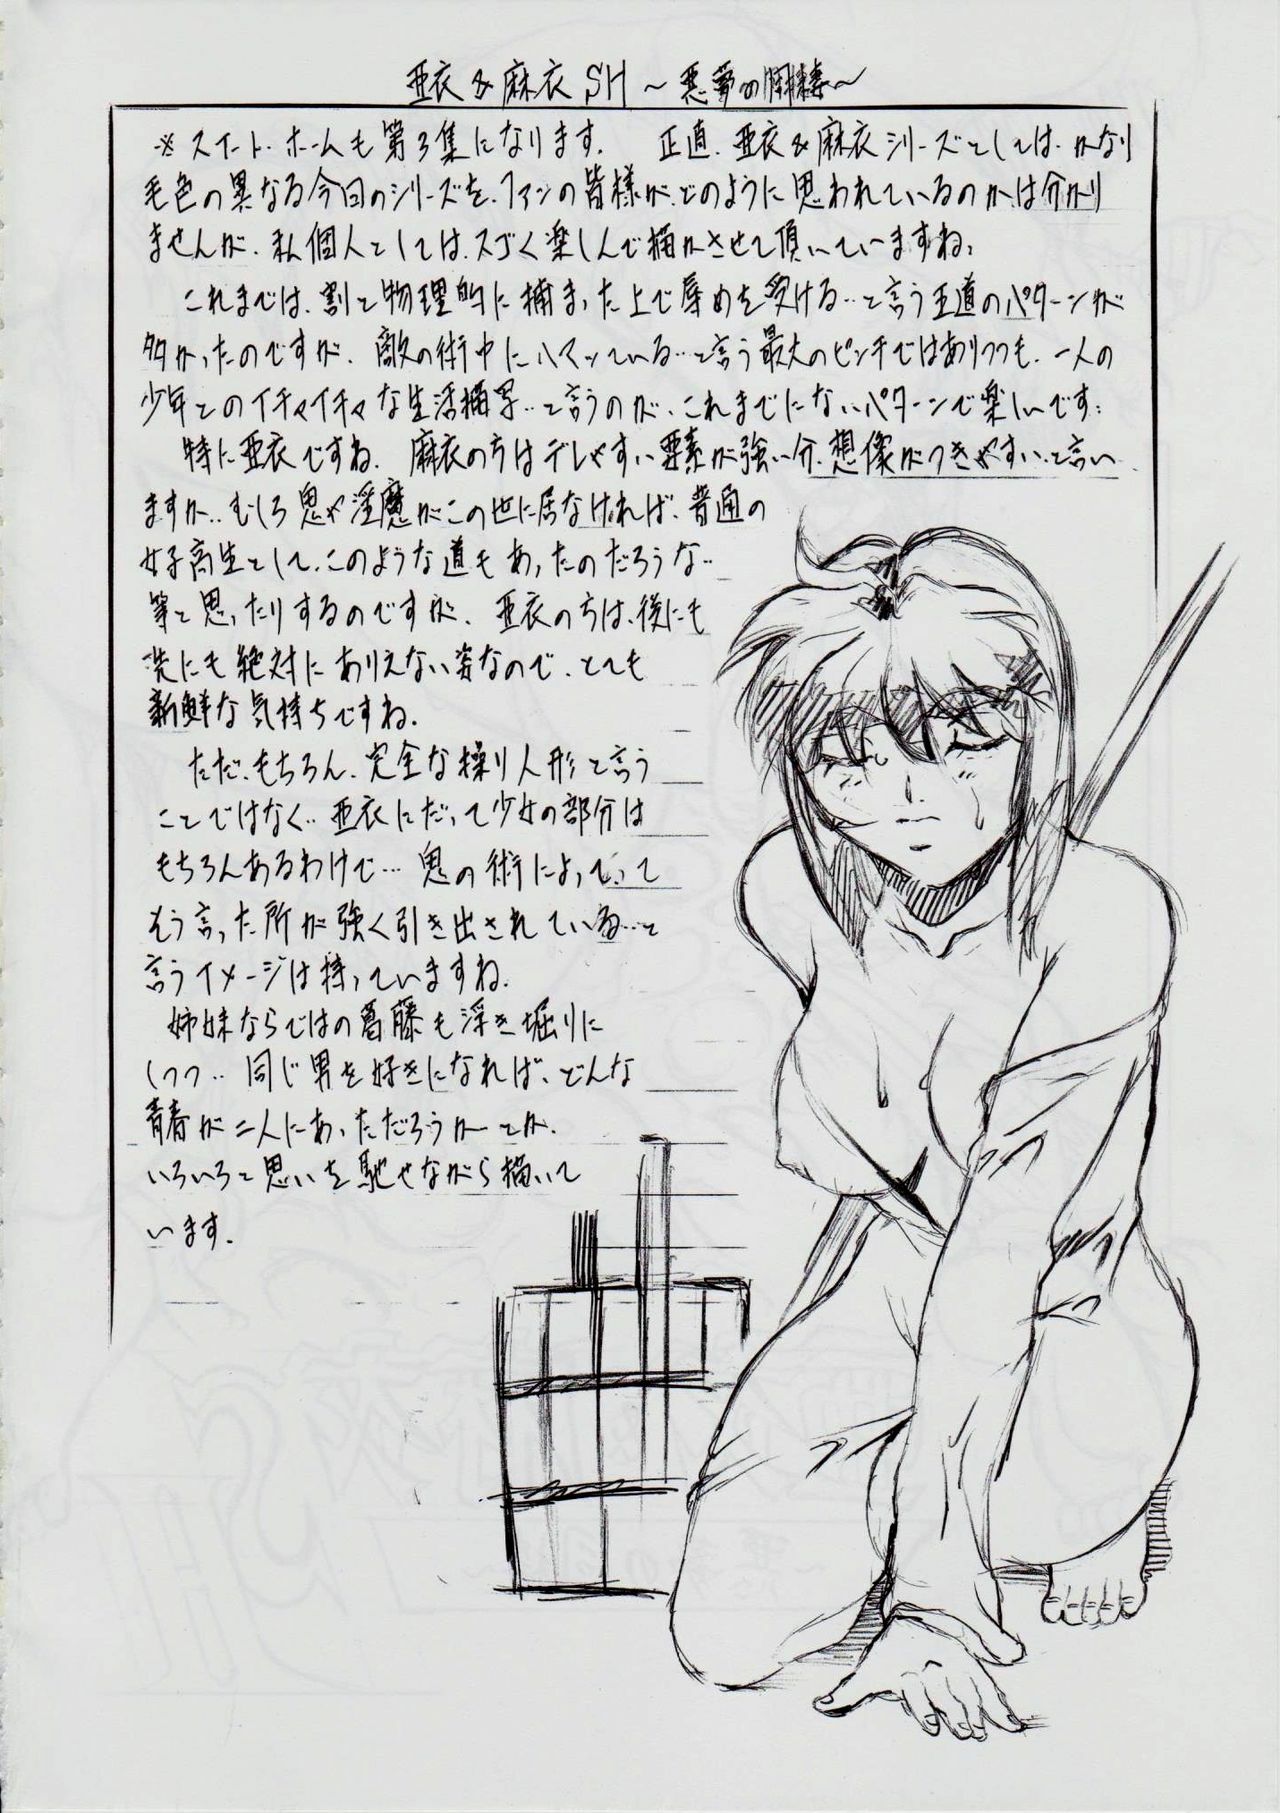 亜衣&麻衣SH～悪夢の同棲～
※スイート・ホームも第3集になります。 正直、亜衣&麻衣シリーズとしては、かなり
毛色の異なる今回のシリーズを、ファンの皆様が、どのように思われているのかは分かり
ませんが、私個人としては、スゴく楽しんで描かさせて頂いていますね。
これまでは、割と物理的に捕まった上で辱めを受ける…と言う王道のパターンが
多かったのですが、敵の術中にハマッている…と言う最大のピンチではありつつも、一人の
少年とのイチャイチャな生活描写…と言うのが、これまでにないパターンで楽しいです。
特に亜衣ですね。麻衣のちはデレやすい要素が強い分、想像がつきやすい、と言い
ますか…むしろ鬼や淫魔がこの世に居なければ、普通の
女子高生として、このような道もあったのだろうな…
等と思ったりするのですが、亜衣のちは、後にも
先にも絶対にありえない姿なので、とても
新鮮な気持ちですね。
ただ、もちろん、完全な操り人形と言う
ことではなく…亜衣にだって少女の部分は
もちろんあるわけで…鬼の術によっていって
そう言った所が強く引き出されている…と
言うイメージは持っていますね。
姉妹ならではの葛藤も浮き堀りに
しつつ…同じ男を好きになれば、どんな
青春が二人にあっただろうかーとか、
いろいろと思いを馳せながら描いて
います。